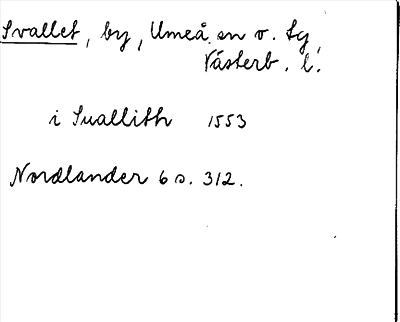 Svallet, by, Umeå sn o. tg,
Västerb. l.
i Suallith 1553
Nordlander 6 s. 312.